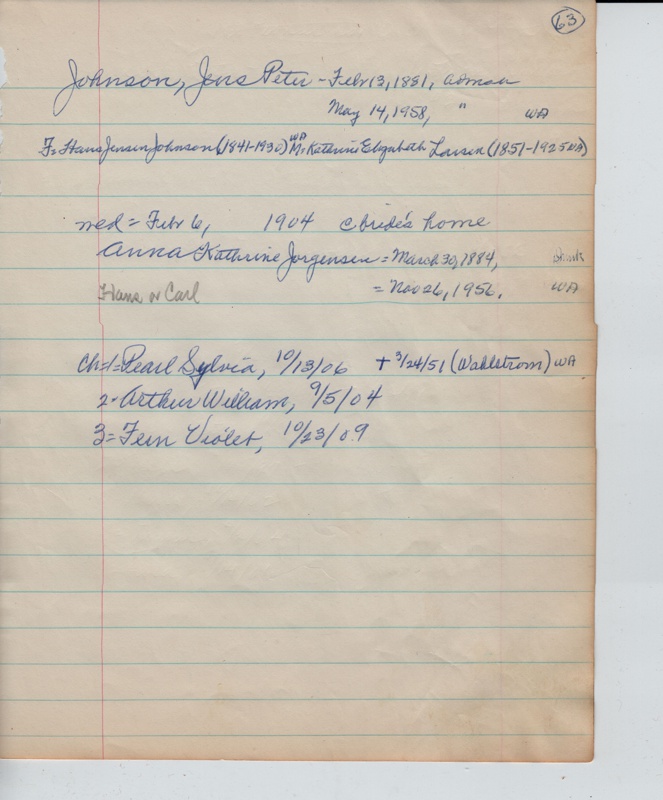 63
Johnson, Jens Peter - Febr 13, 1881, adman
May 14, 1958, " WA
F= Hans Jensen Johnson (1841-1930) WA M: Kathrine Elizabeth Larsen (1851-1925 WA)
med = Febr 6, 1904 c bride's home
Anna Kathrine Jorgensen = March 30, 1884,
Hans or Carl = Nov 26, 1956. WA
Ch=1= Pearl Sylvia, 10/13/06 + 3/24/51 (Wahlstrom) WA
2= Arthur William, 9/5/04
3= Fern Violet, 10/23/09